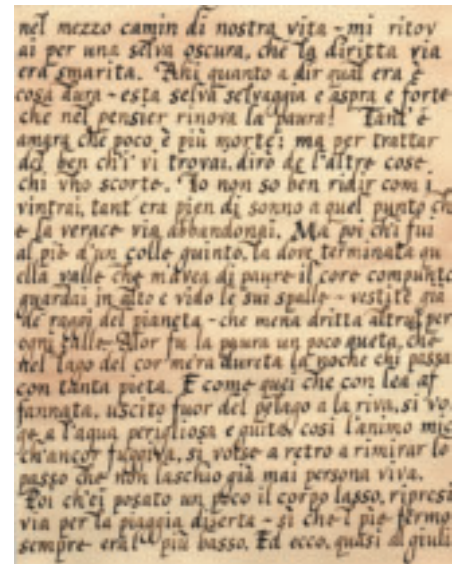 nel mezzo camin di nostra vita - mi ritov
ai per una selva oscura, che la diritta via
era smarita. Ahi quanto a dir qual era è
cosa dura - esta selva selvaggia e aspra e forte
che nel pensier rinova la paura! Tant' è
amara che poco è più morte; ma per trattar
del ben ch'i' vi trovai, diro de l'altre cose
chi vho scorte. Io non so ben ridir com i
vintrai, tant' era pien di sonno a quel punto ch
e la verace via abbandonai. Ma poi chi fui
al piè d'un colle quinto, la dove terminata qu
ella valle che m'avea di paure il core compunto
guardai in alto e vido le sui spalle - vestite già
de raggi del pianeta - che mena dritta altrui per
ogni calle. Alor fu la paura un poco queta, che
nel lago del cor m'era dureta la noche chi passa
con tanta pieta. E come quei che con lea af
fannata, uscito fuor del pelago a la riva, si vo
ge a l'aqua perigliosa e guita, cosi l'animo mio
ch'ancor fuggiva, si volse a retro a rimirar lo
passo che non laschio già mai persona viva.
Poi ch'ei posato un poco il corpo lasso, ripresi
via per la piaggia diserta - si che 'l piè fermo
sempre era l' più basso. Ed ecco, quasi al giuli